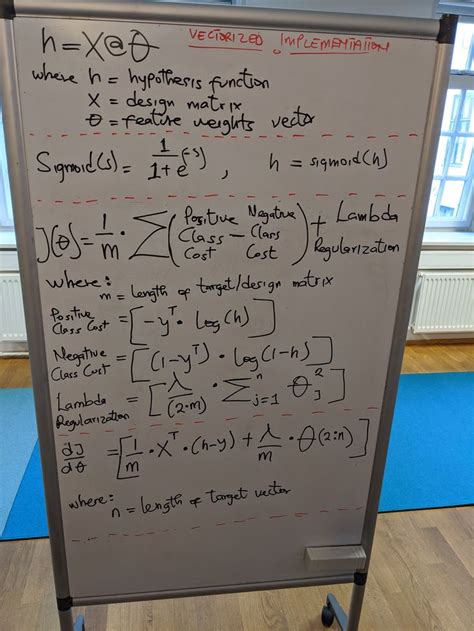 h = X@θ VECTORIZED IMPLEMENTATION
where h = hypothesis function
X = design matrix
θ = feature weights vector
Sigmoid(s) = 1/1+e^(-s) , h = sigmoid(h)
J(θ) = 1/m · ∑(Positive Class Cost − Negative Class Cost) + Lambda Regularization
where:
m = length of target/design matrix
Positive Class Cost = [-y^T · log(h)]
Negative Class Cost = [(1-y^T) · log(1-h)]
Lambda Regularization = [λ/(2·m) · ∑_{j=1}^{n} θ_J^2]
dJ/dθ = [1/m · X^T · (h-y) + λ/m · θ(2:n)]
where:
n = length of target vector